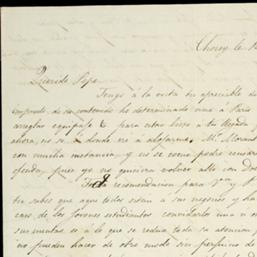 Choisy le R
Querido Pepe
Tengo á la vista tu apreciable d
 de su contenido he determinado irme á Paris
arreglar equipage & para estar listo a tu llegada
ahora, no se á donde ir á alojarme. Mr. Morant
con mucha instancia, y no se como podré
ofenda, pues yo no quisiera volver allí con Do
 recomendacion para V. y P
te sabes que aqui todos miran a sus negocios y ha
caso de los jovenes estudiantes convidarlos una o o
 es a lo que se reduce toda su atencion p
no pueden hacer de otro modo sin perjuicio de